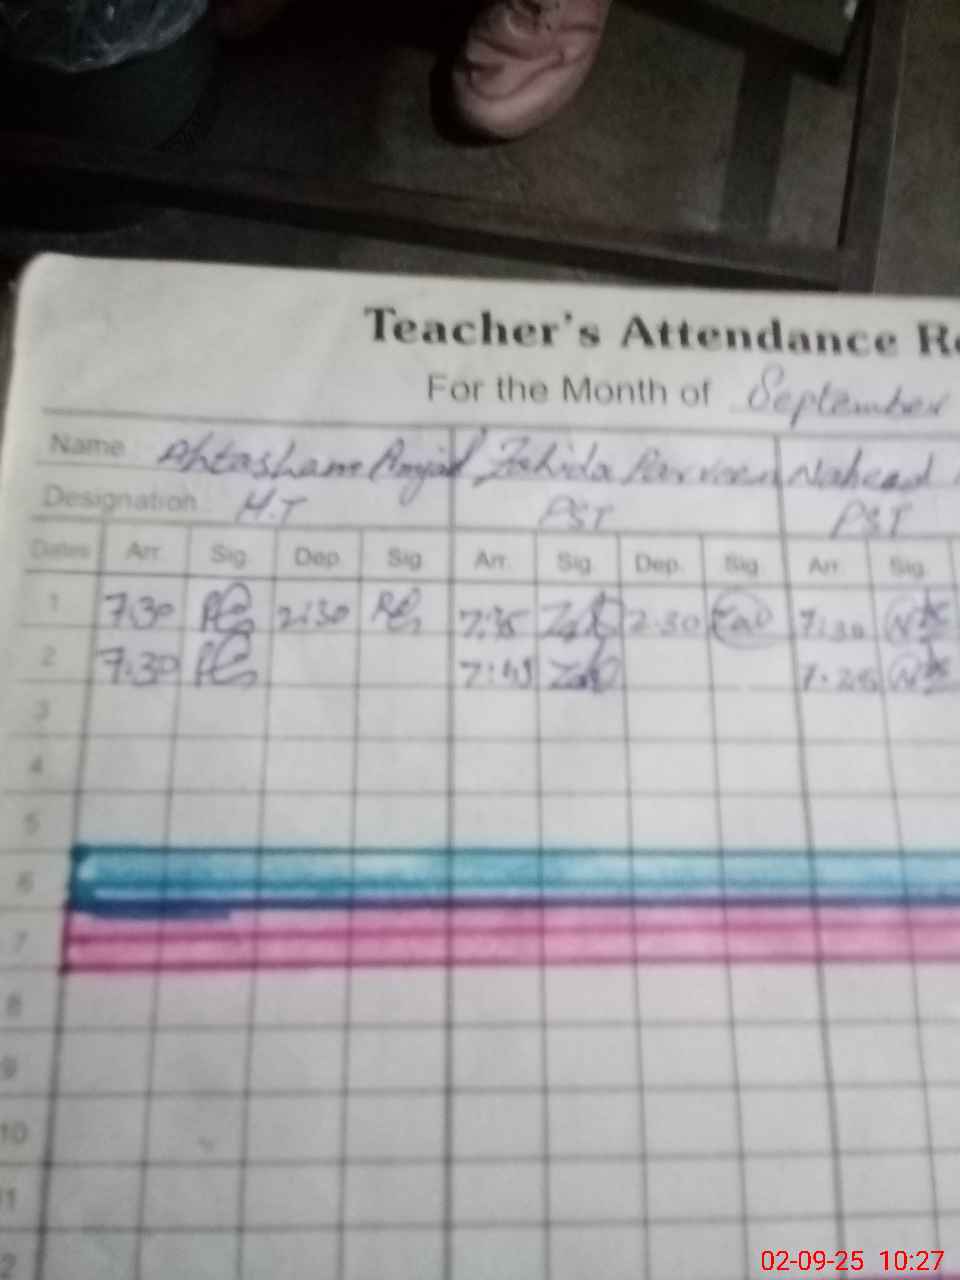 Teacher's Attendance
For the Month of September
Name Ahtasham Amjad Zahida Parveen Naheed
Designation H.T PST PST
Dates Arr. Sig. Dep. Sig. Arr. Sig. Dep. Sig. Arr. Sig.
1 7:30 2:30 7:35 2:30 7:30
2 7:30 7:25
3
4
5
6
7
8
9
10
02-09-25 10:27